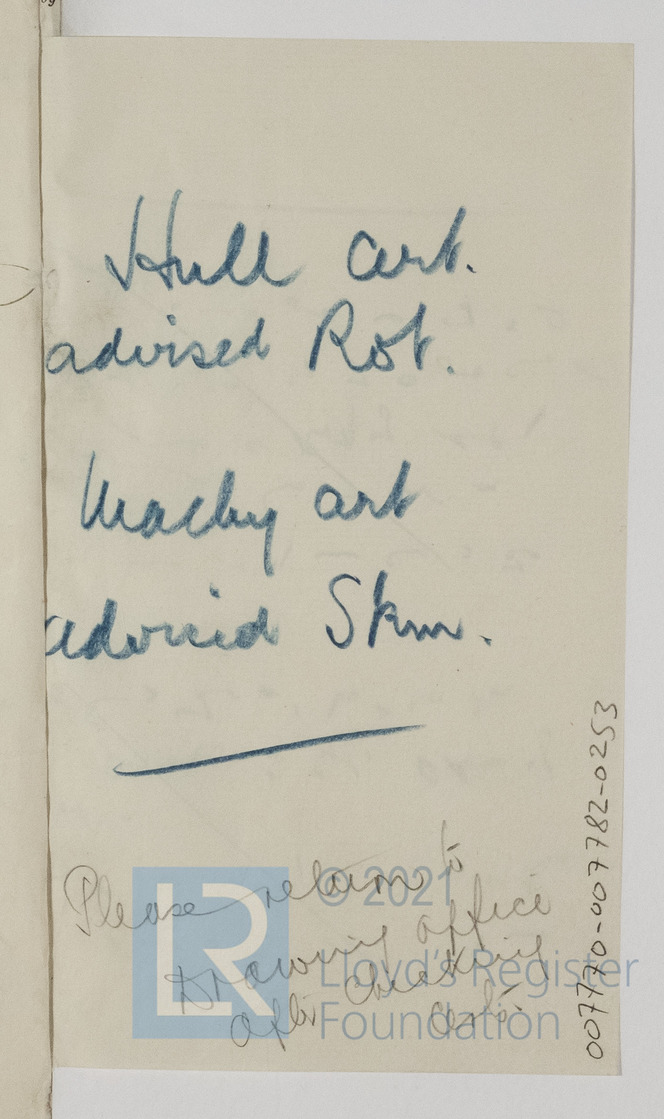 Hull cert.
advised Rot.
Machy cert
advised Skm.
Please return to
Drawing office
after checking
certs.
007770-007782-0253
LR
© 2021
Lloyd's Register
Foundation